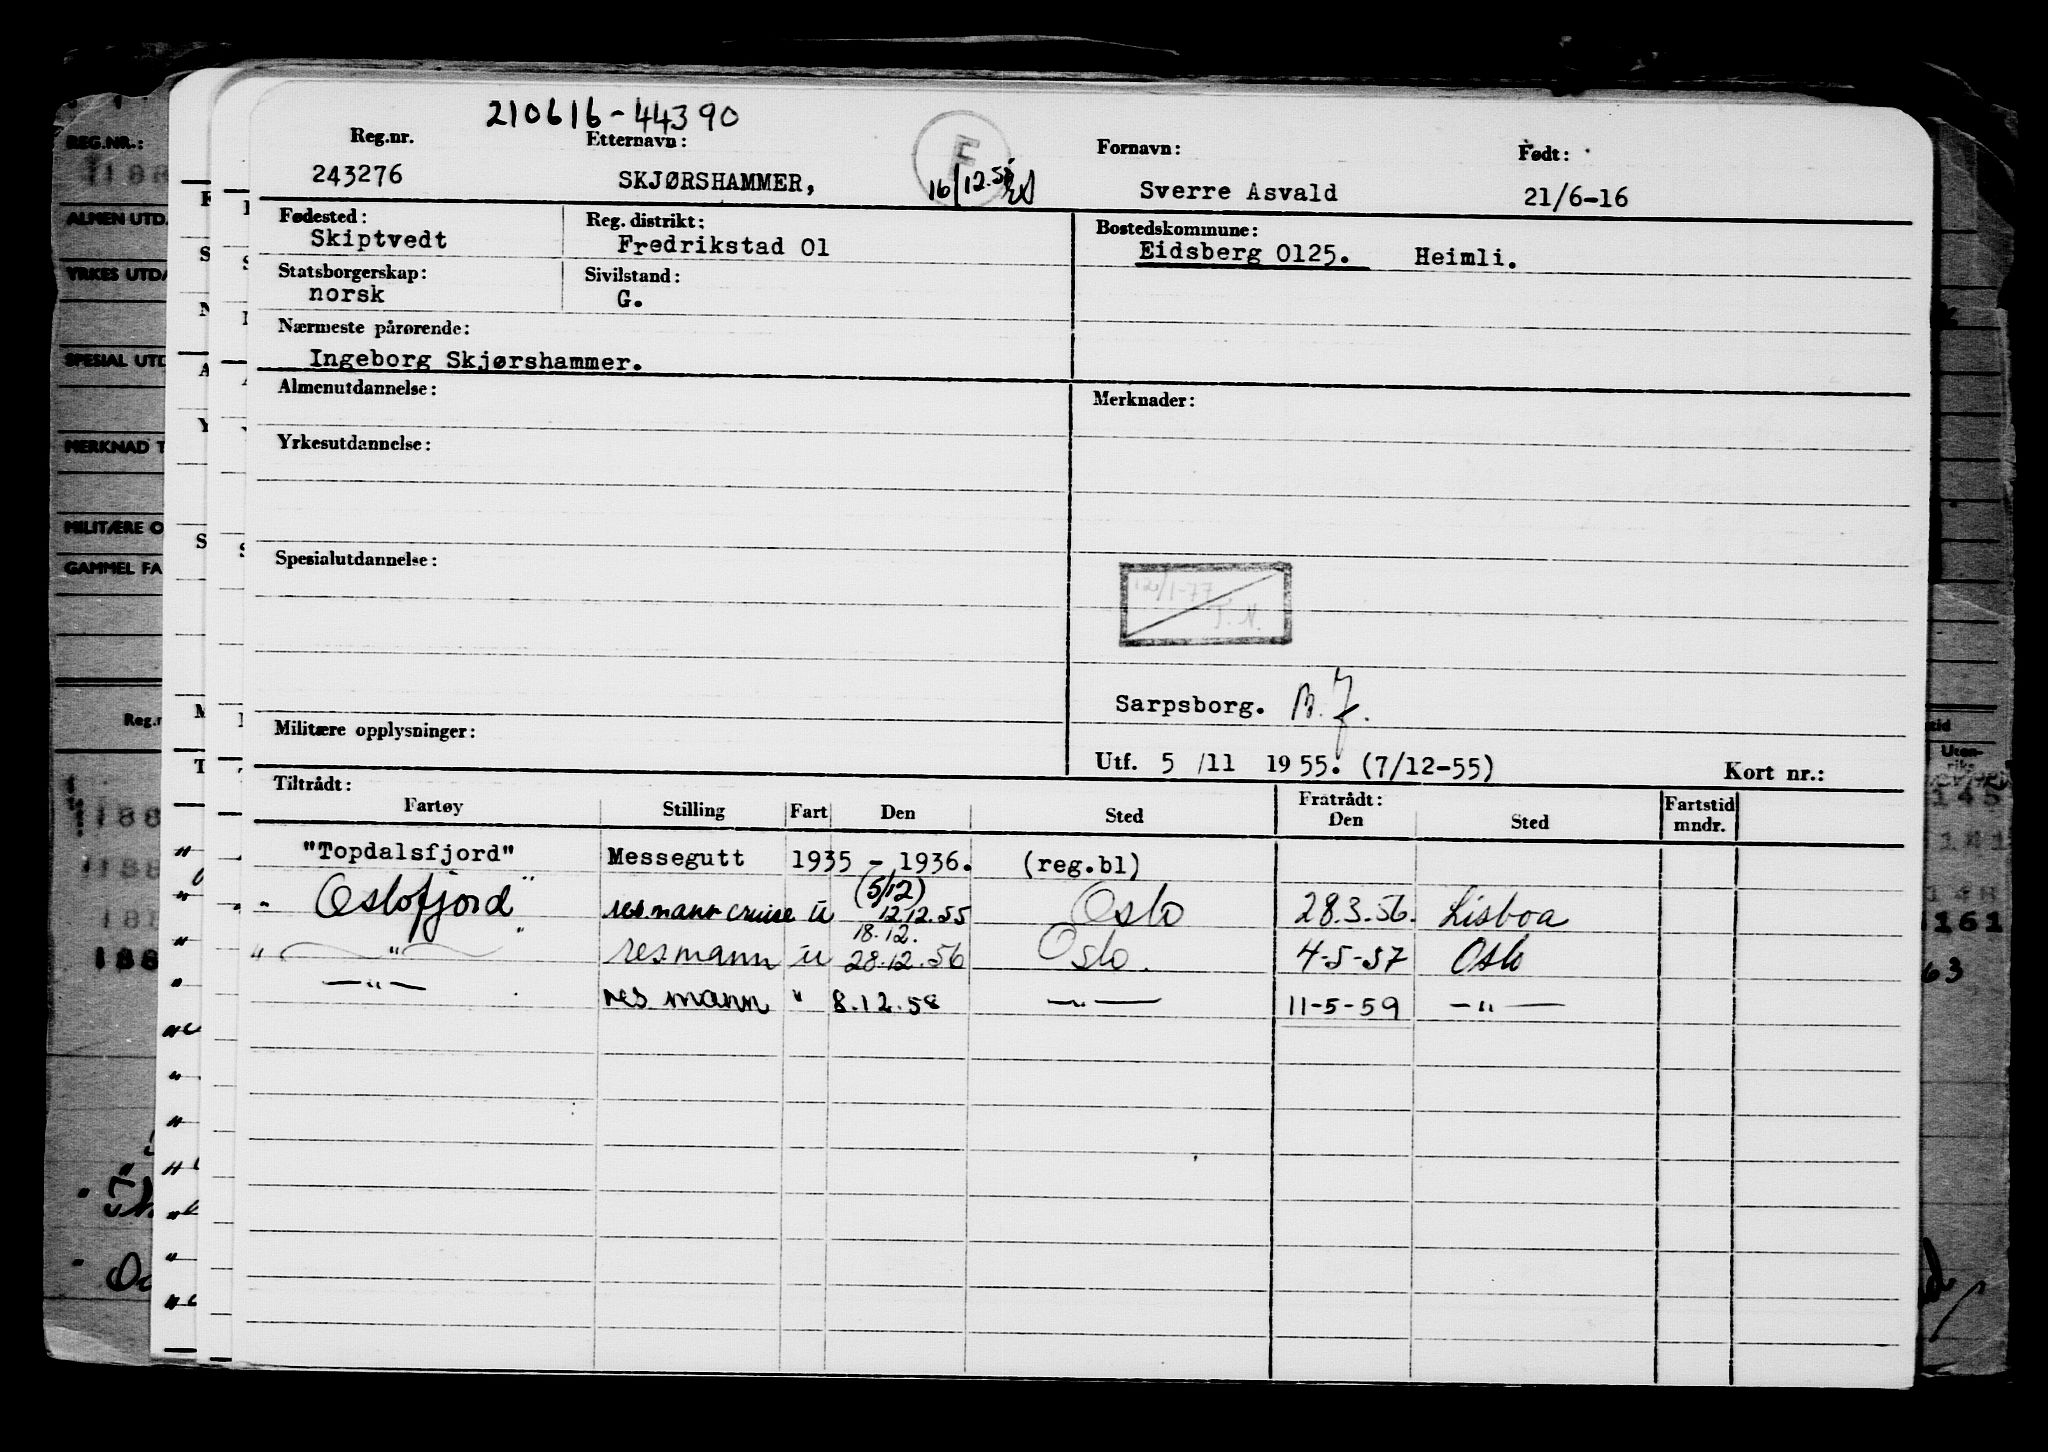 210616-44390
Reg.nr. Etternavn: Fornavn: Født:
243276 SKJØRSHAMMER, Sverre Asvald 21/6-16
F
16/12.55
Fødested: Reg. distrikt: Bostedskommune:
Skiptvedt Fredrikstad 01 Eidsberg 0125. Heimli.
Statsborgerskap: Sivilstand:
norsk G.
Nærmeste pårørende:
Ingeborg Skjørshammer.
Almenutdannelse: Merknader:
Yrkesutdannelse:
Spesialutdannelse:
/1-77
T.N.
Sarpsborg.
Militære opplysninger:
Utf. 5 /11 1955. (7/12-55) Kort nr.:
Tiltrådt: Fratrådt: Fartstid
Fartøy Stilling Fart Den Sted Den Sted mndr.
"Topdalsfjord" Messegutt 1935 - 1936. (reg.bl)
(5/12)
" Oslofjord" resmann cruise u 12.12.55 Oslo 28.3.56. Lisboa
18.12.
" — " — " resmann u 28.12.56 Oslo. 4-5-57 Oslo
— " — res mann " 8.12.58 — " — 11-5-59 — " —
REG.NR.:
ALMEN UTD.
YRKES UTDA
SPESIAL UTD
MERKNAD T
MILITÆRE O
GAMMEL FA
Reg.n
188
188
188
Uten-
riks
145
141
148
161
63